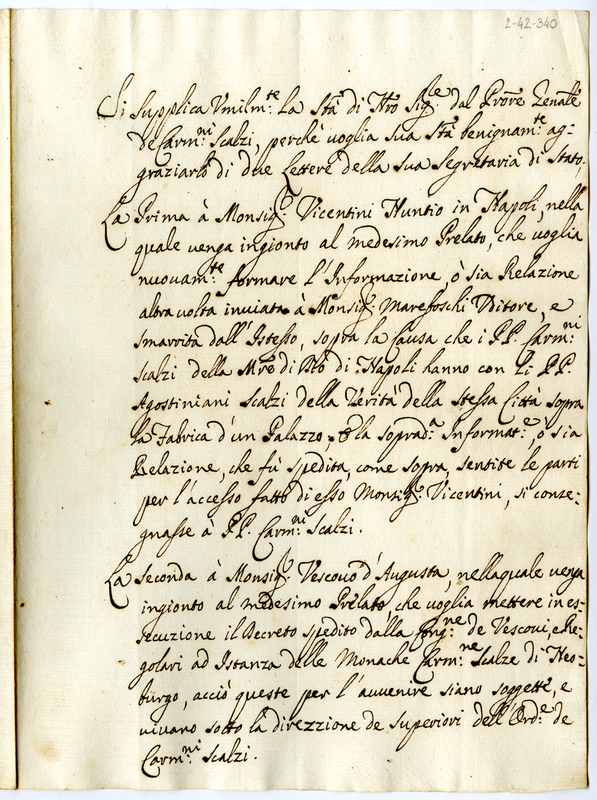 2-42-340
Si supplica Umilm:te la Sta di Nro Sigre dal Prore Genale
de Carm:ni Scalzi, perchè voglia sua Sta benignam:te ag=
graziarlo di due Lettere della sua Segretaria di Stato,
La Prima à Monsigr: Vicentini Nuntio in Napoli, nella
quale venga ingionto al medesimo Prelato, che voglia
nuovam:te formare l'Informazione, ò sia Relazione
altra volta inviata à Monsigr: Marefoschi Uditore, e
smarrita dall'Istesso, sopra la Causa che i PP. Carm:ni
Scalzi della Mre di Dio di Napoli hanno con li PP.
Agostiniani Scalzi della Verità della stessa Città sopra
la Fabrica d'un Palazzo, la soprad:a Informat:e, ò sia
Relazione, che fù spedita, come sopra, sentite le parti
per l'accesso fatto di esso Monsigr: Vicentini, si conse=
gnasse à PP. Carm:ni Scalzi.
La Seconda à Monsigr: Vescovo d'Augusta, nella quale venga
ingionto al medesimo Prelato, che voglia mettere in es=
secuzione il Decreto spedito dalla Cong:ne de Vescovi, e Re=
golari ad Istanza delle Monache Carm:ne Scalze di Neo=
burgo, acciò queste per l'avvenire siano soggette, e
vivano sotto la direzzione de Superiori dell'Ord:e de
Carm:ni Scalzi.